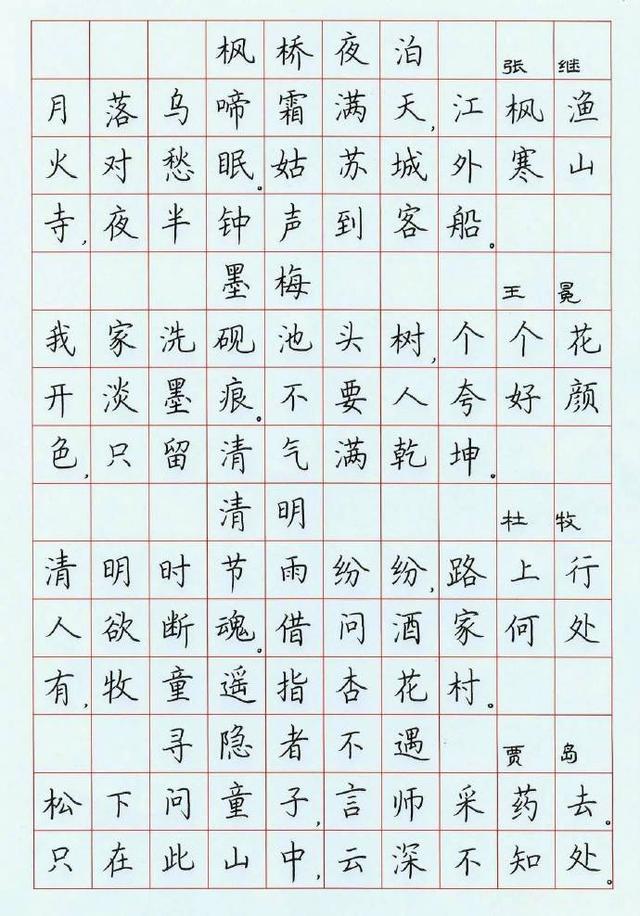 枫桥夜泊 张继
月落乌啼霜满天,江枫渔
火对愁眠。姑苏城外寒山
寺,夜半钟声到客船。
墨梅 王冕
我家洗砚池头树,个个花
开淡墨痕。不要人夸好颜
色,只留清气满乾坤。
清明 杜牧
清明时节雨纷纷,路上行
人欲断魂。借问酒家何处
有,牧童遥指杏花村。
寻隐者不遇 贾岛
松下问童子,言师采药去。
只在此山中,云深不知处。